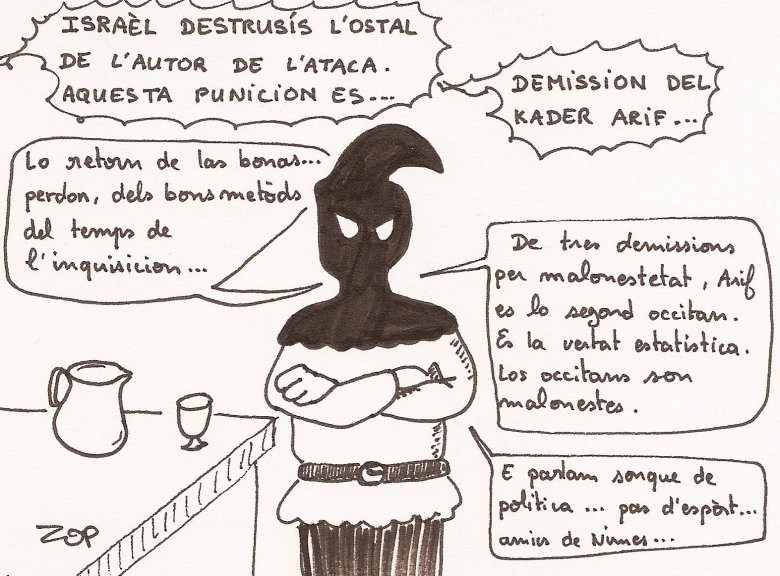 ISRAÈL DESTRUSÍS L'OSTAL
DE L'AUTOR DE L'ATACA.
AQUESTA PUNICION ES...
DEMISSION DEL
KADER ARIF...
Lo retorn de las bonas...
perdon, dels bons metòds
del temps de
l'inquisicion...
De tres demissions
per malonestetat, Arif
es lo segond occitan.
Es la vertat estatistica.
Los occitans son
malonestes.
E parlam sonque de
politica... pas d'espòrt...
amics de Nimes...
ZOP